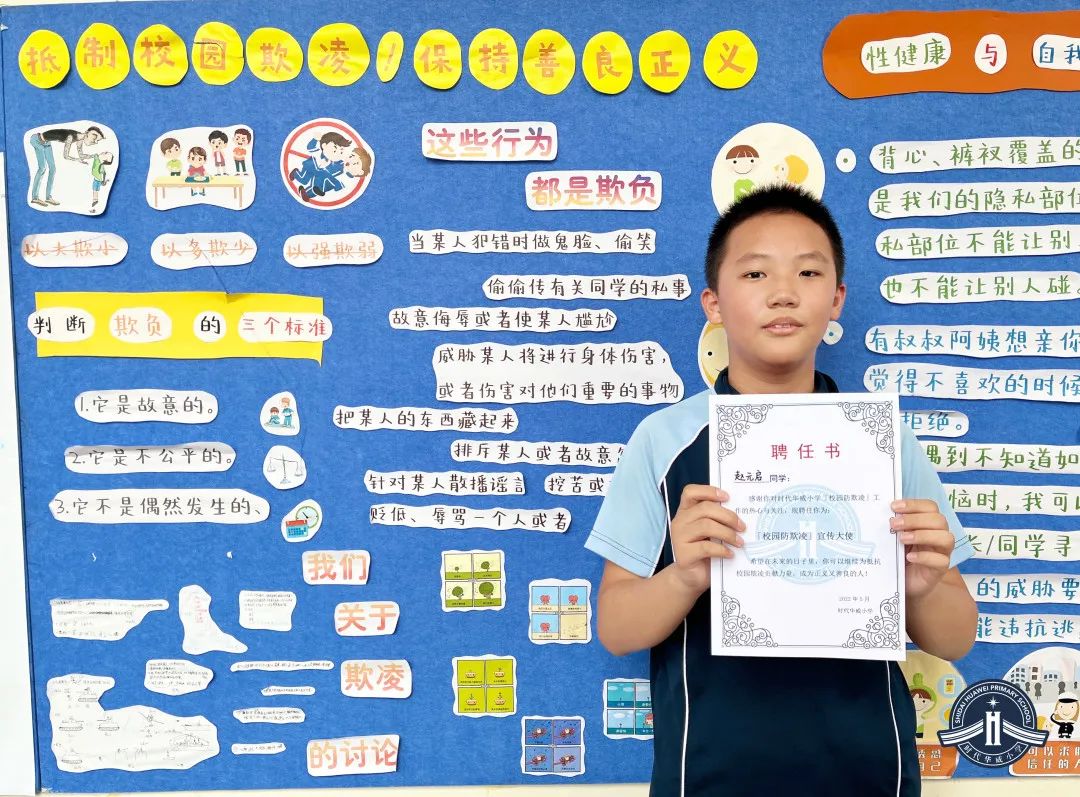 抵制校园欺凌！保持善良正义
性健康
与
自我
以大欺小
以多欺少
以强欺弱
判断 欺负 的 三个标准
1.它是故意的。
2.它是不公平的。
3.它不是偶然发生的、
我们
关于
欺凌
的讨论
这些行为
都是欺负
当某人犯错时做鬼脸、偷笑
偷偷传有关同学的私事
故意侮辱或者使某人尴尬
威胁某人将进行身体伤害，
或者伤害对他们重要的事物
把某人的东西藏起来
排斥某人或者故意
针对某人散播谣言
挖苦或
贬低、辱骂一个人或者
背心、裤衩覆盖的
是我们的隐私部位
私部位不能让别
也不能让别人碰。
有叔叔阿姨想亲你
觉得不喜欢的时候
拒绝。
遇到不知道如
恼时，我可
长/同学寻
的威胁要
能违抗逃
聘任书
赵元启 同学：
感谢你对时代华威小学「校园防欺凌」工
作的热心与关注，现聘任你为：
「校园防欺凌」宣传大使
希望在未来的日子里，你可以继续为抵抗
校园欺凌贡献力量，成为正义又善良的人！
2022年5月
时代华威小学
SHIDAI HUAWEI PRIMARY SCHOOL
时代华威小学
自己
可以求助
信任的人